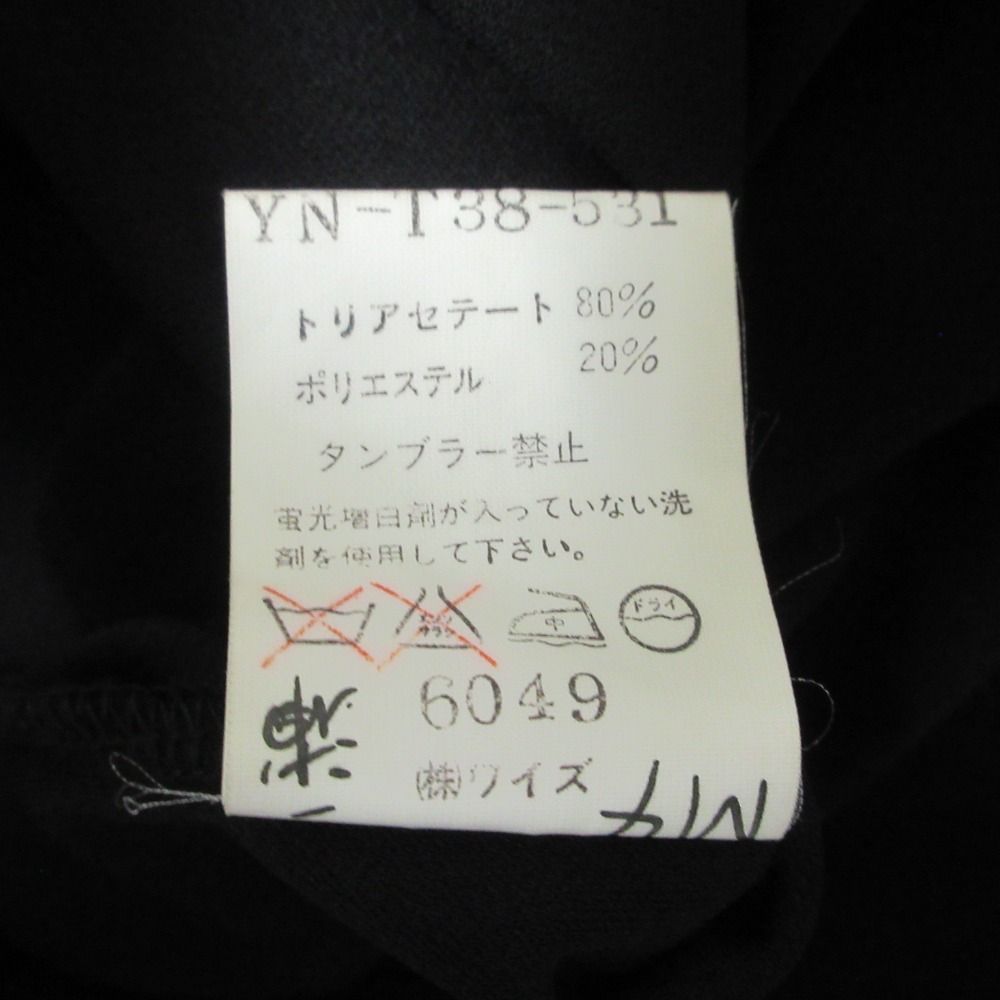 YN-T38-531
トリアセテート 80%
ポリエステル 20%
タンブラー禁止
蛍光増白剤が入っていない洗
剤を使用して下さい。
エンソ サラシ 中 ドライ
6049
㈱ワイズ